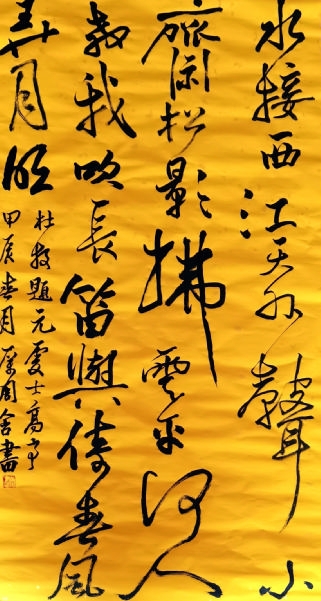 水接西江天外聲小
齋松影拂雲平何人
教我吹長笛與倚春風
弄月明
杜牧題元處士高亭
甲辰春月周舍書